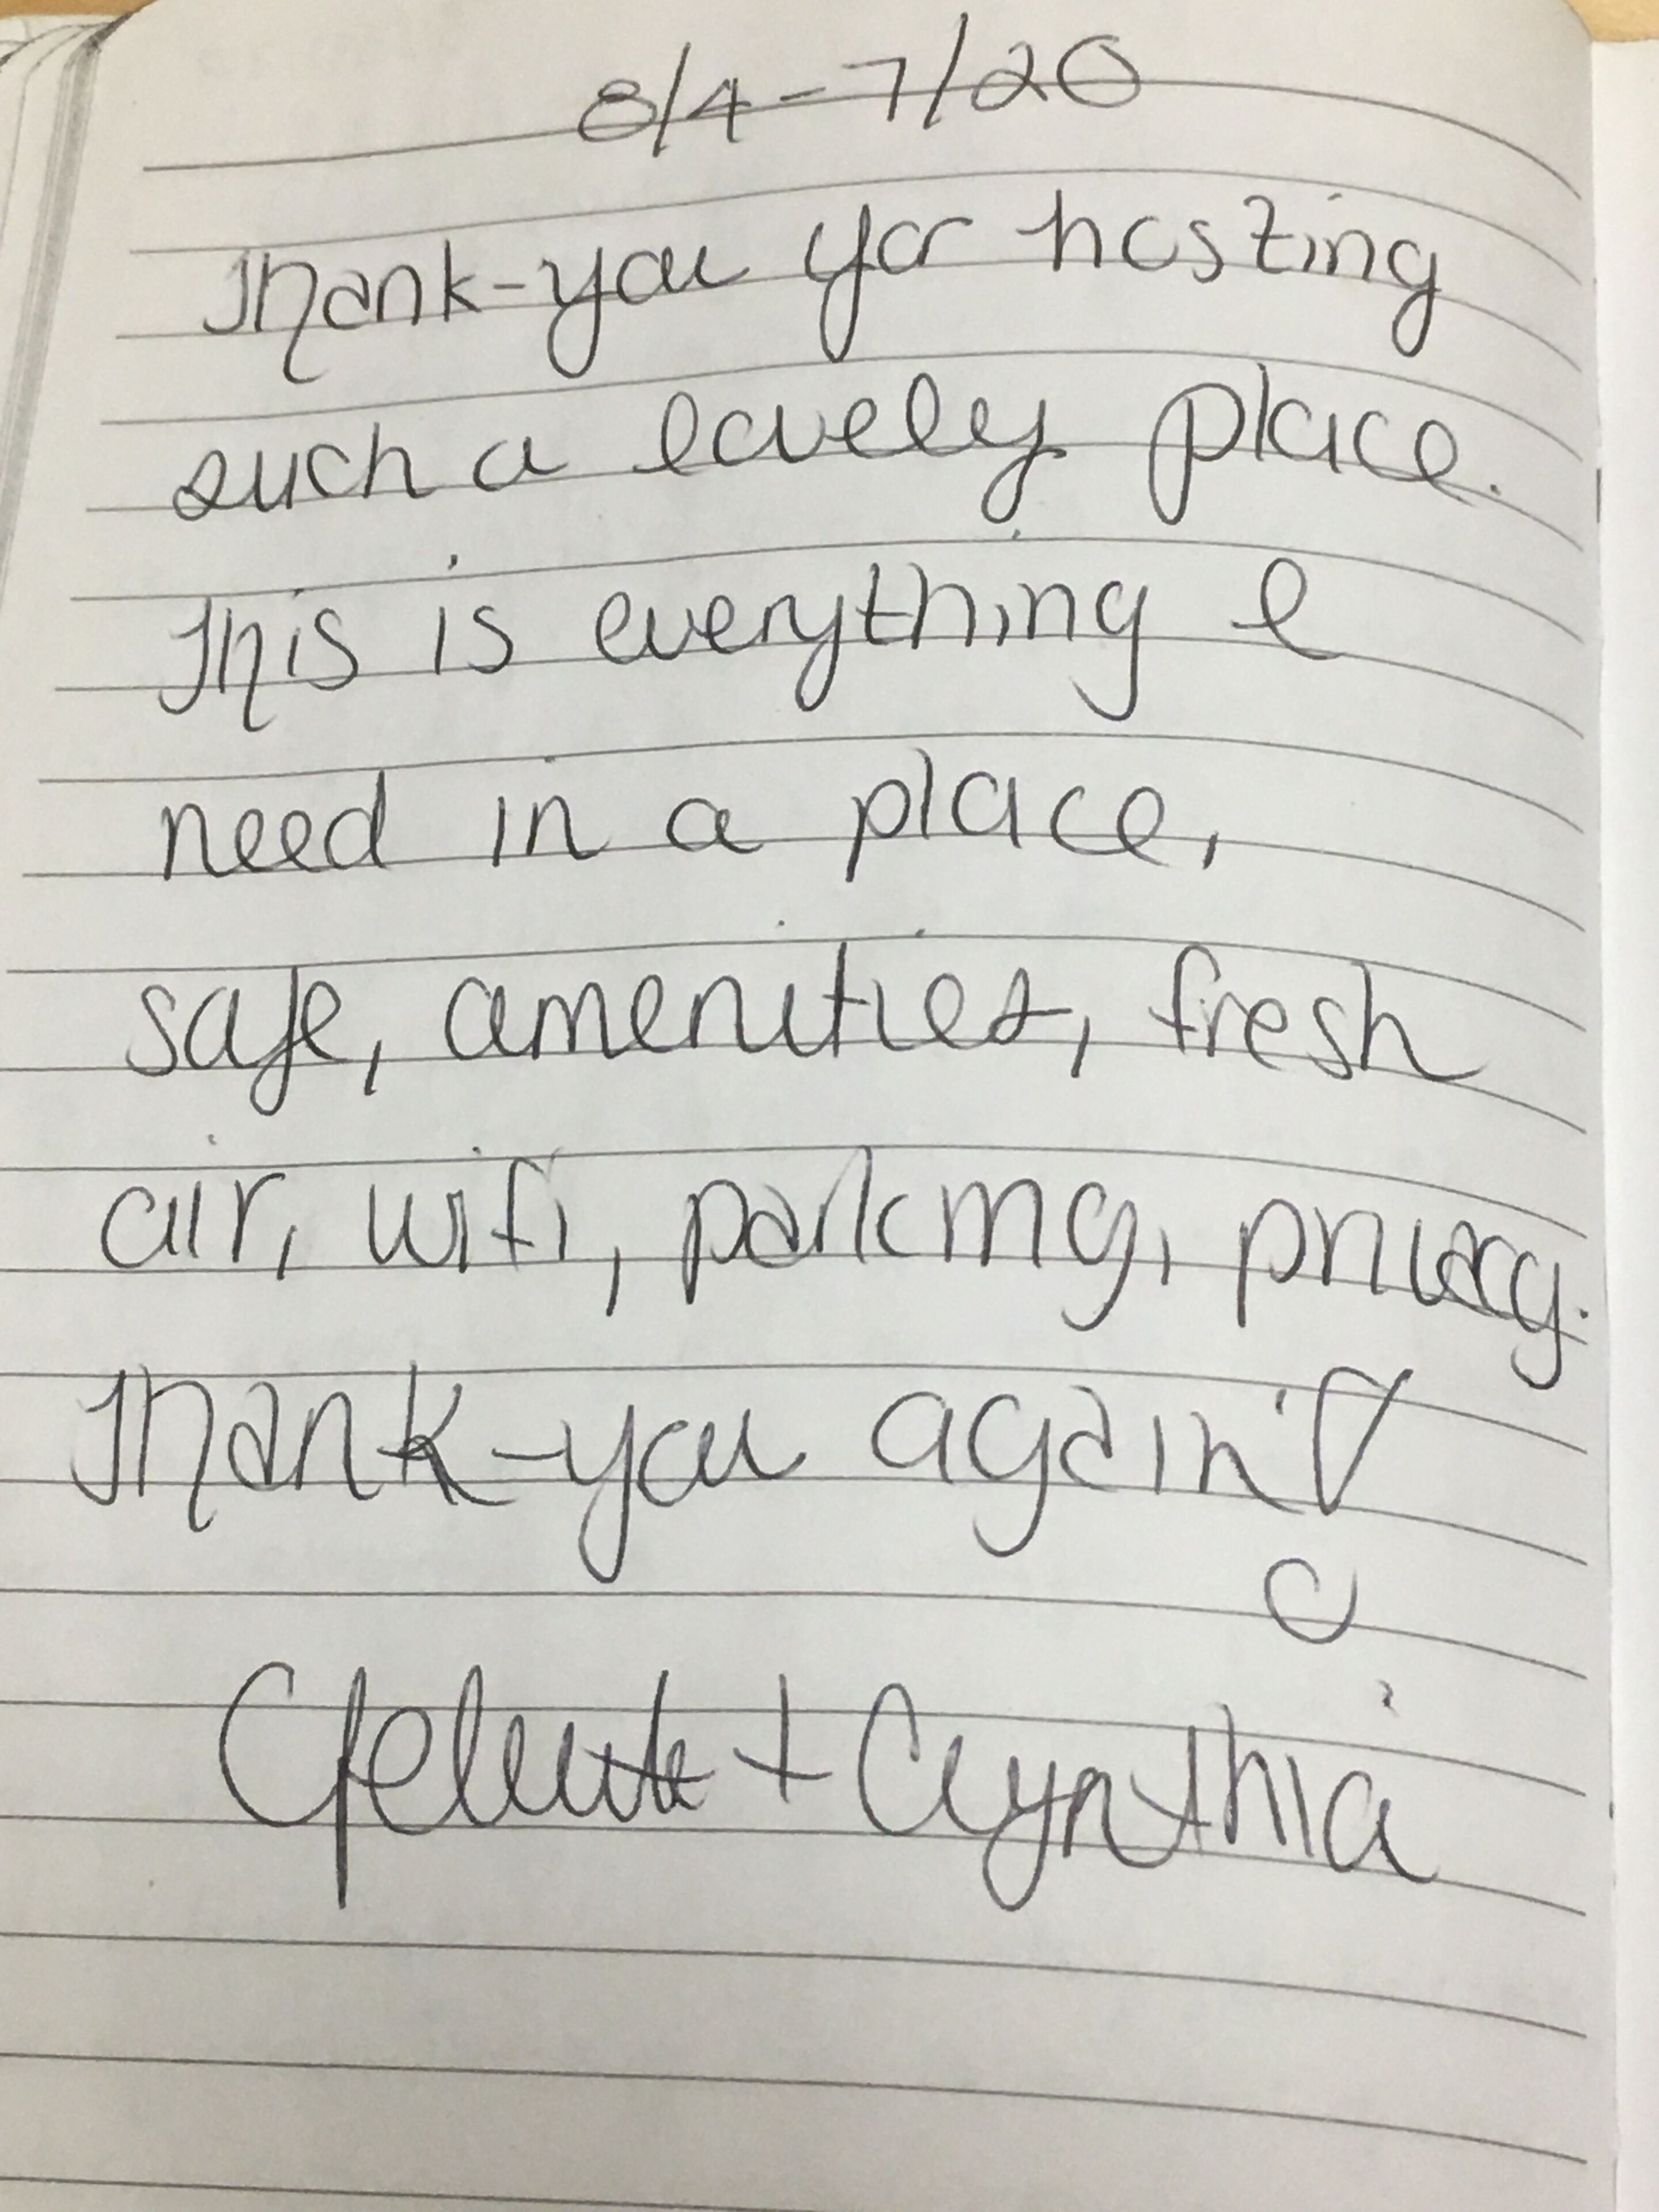 8/4-7/20
Thank-you for hosting
such a lovely place.
This is everything I
need in a place,
safe, amenities, fresh
air, wifi, parking, privacy.
Thank-you again!
+ Cynthia